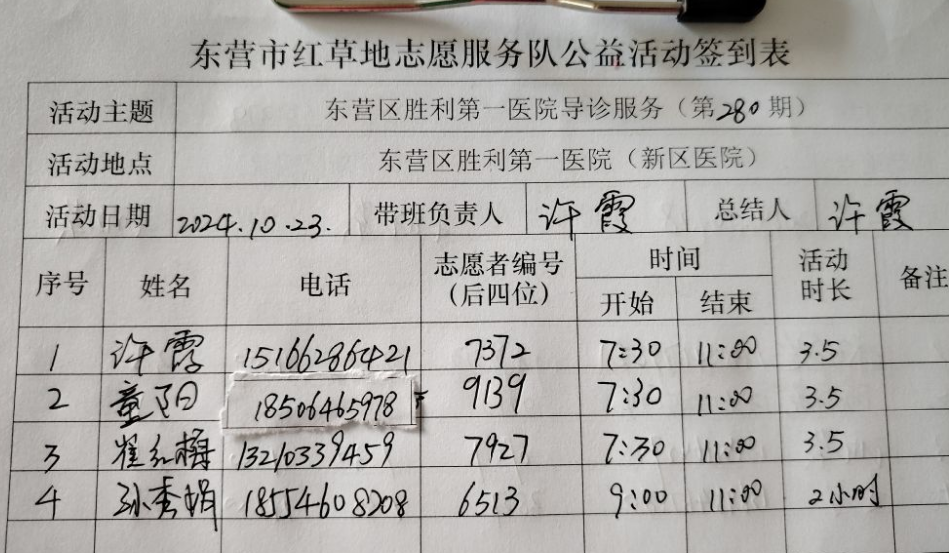 东营市红草地志愿服务队公益活动签到表
活动主题 东营区胜利第一医院导诊服务（第280期）
活动地点 东营区胜利第一医院（新区医院）
活动日期 2024.10.23. 带班负责人 许霞 总结人 许霞
序号 姓名 电话 志愿者编号（后四位） 时间 开始 结束 活动时长 备注
1 许霞 15166286421 7372 7:30 11:00 3.5
2 童阳 18506465978 9139 7:30 11:00 3.5
3 崔红梅 13210339459 7927 7:30 11:00 3.5
4 孙秀娟 18554608208 6513 9:00 11:00 2小时